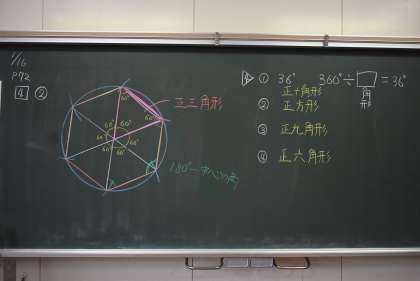 1/16
P.92
4 ②
60°
60°
60° 60°
60° 60°
60° 60°
正三角形
180°-中心の角
① 36° 360°÷□角形=36°
正十角形
② 正方形
③ 正九角形
④ 正六角形